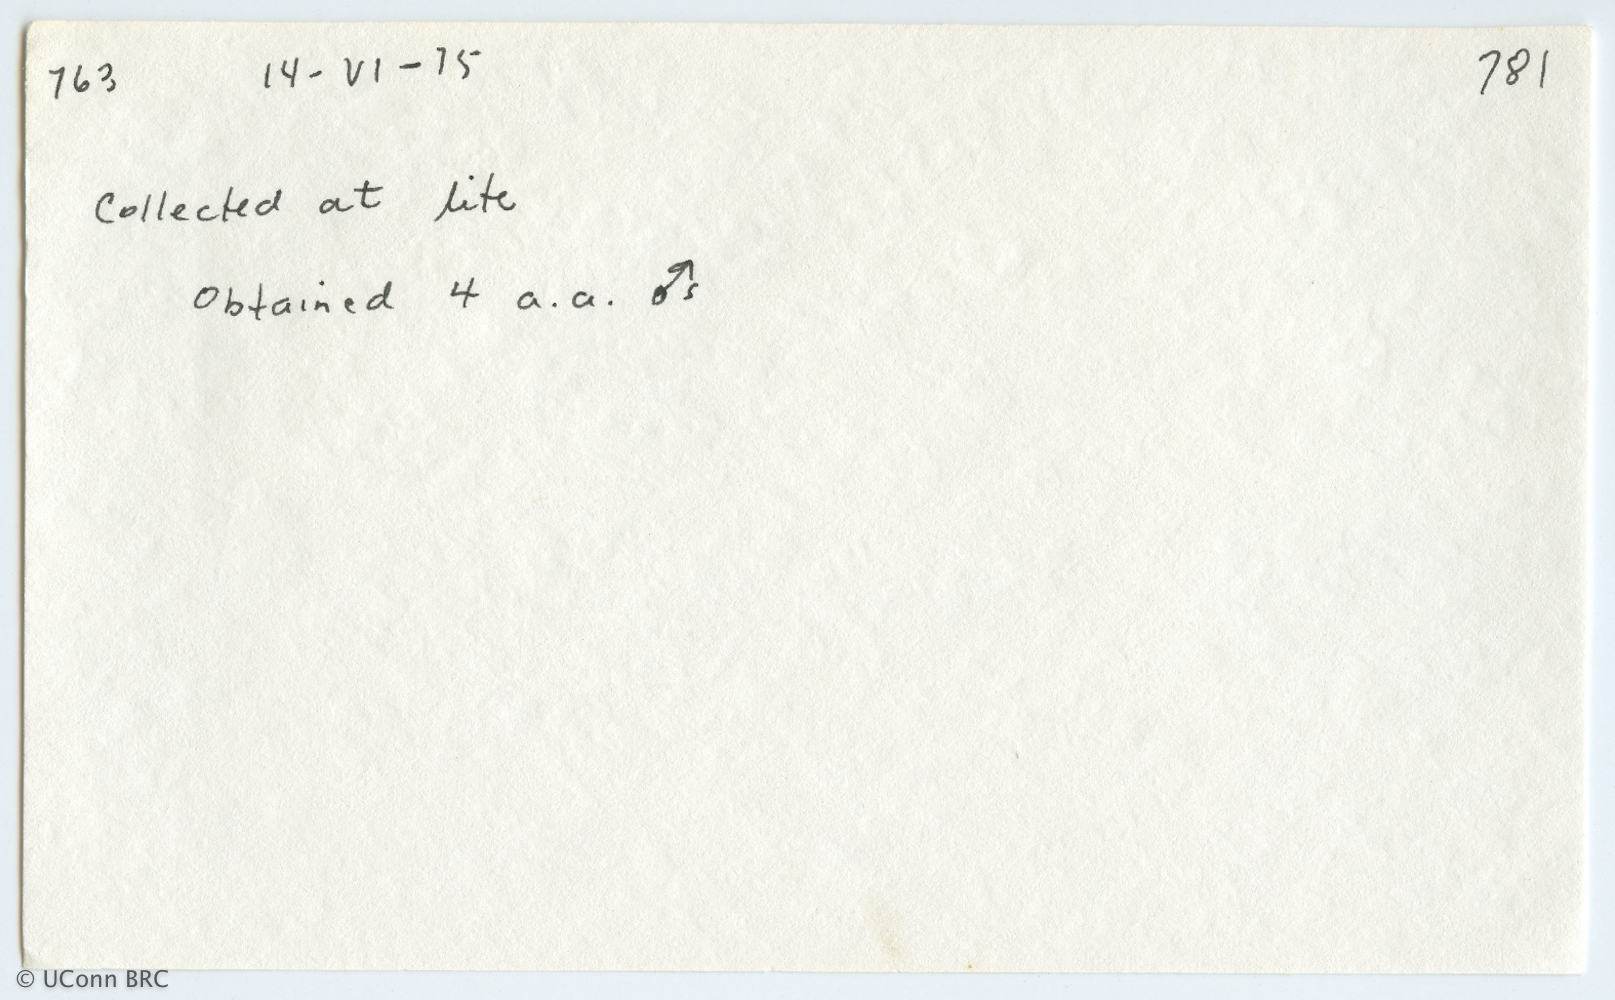 763 14-VI-75 781
Collected at lite
Obtained 4 a.a. ♂s
© UConn BRC